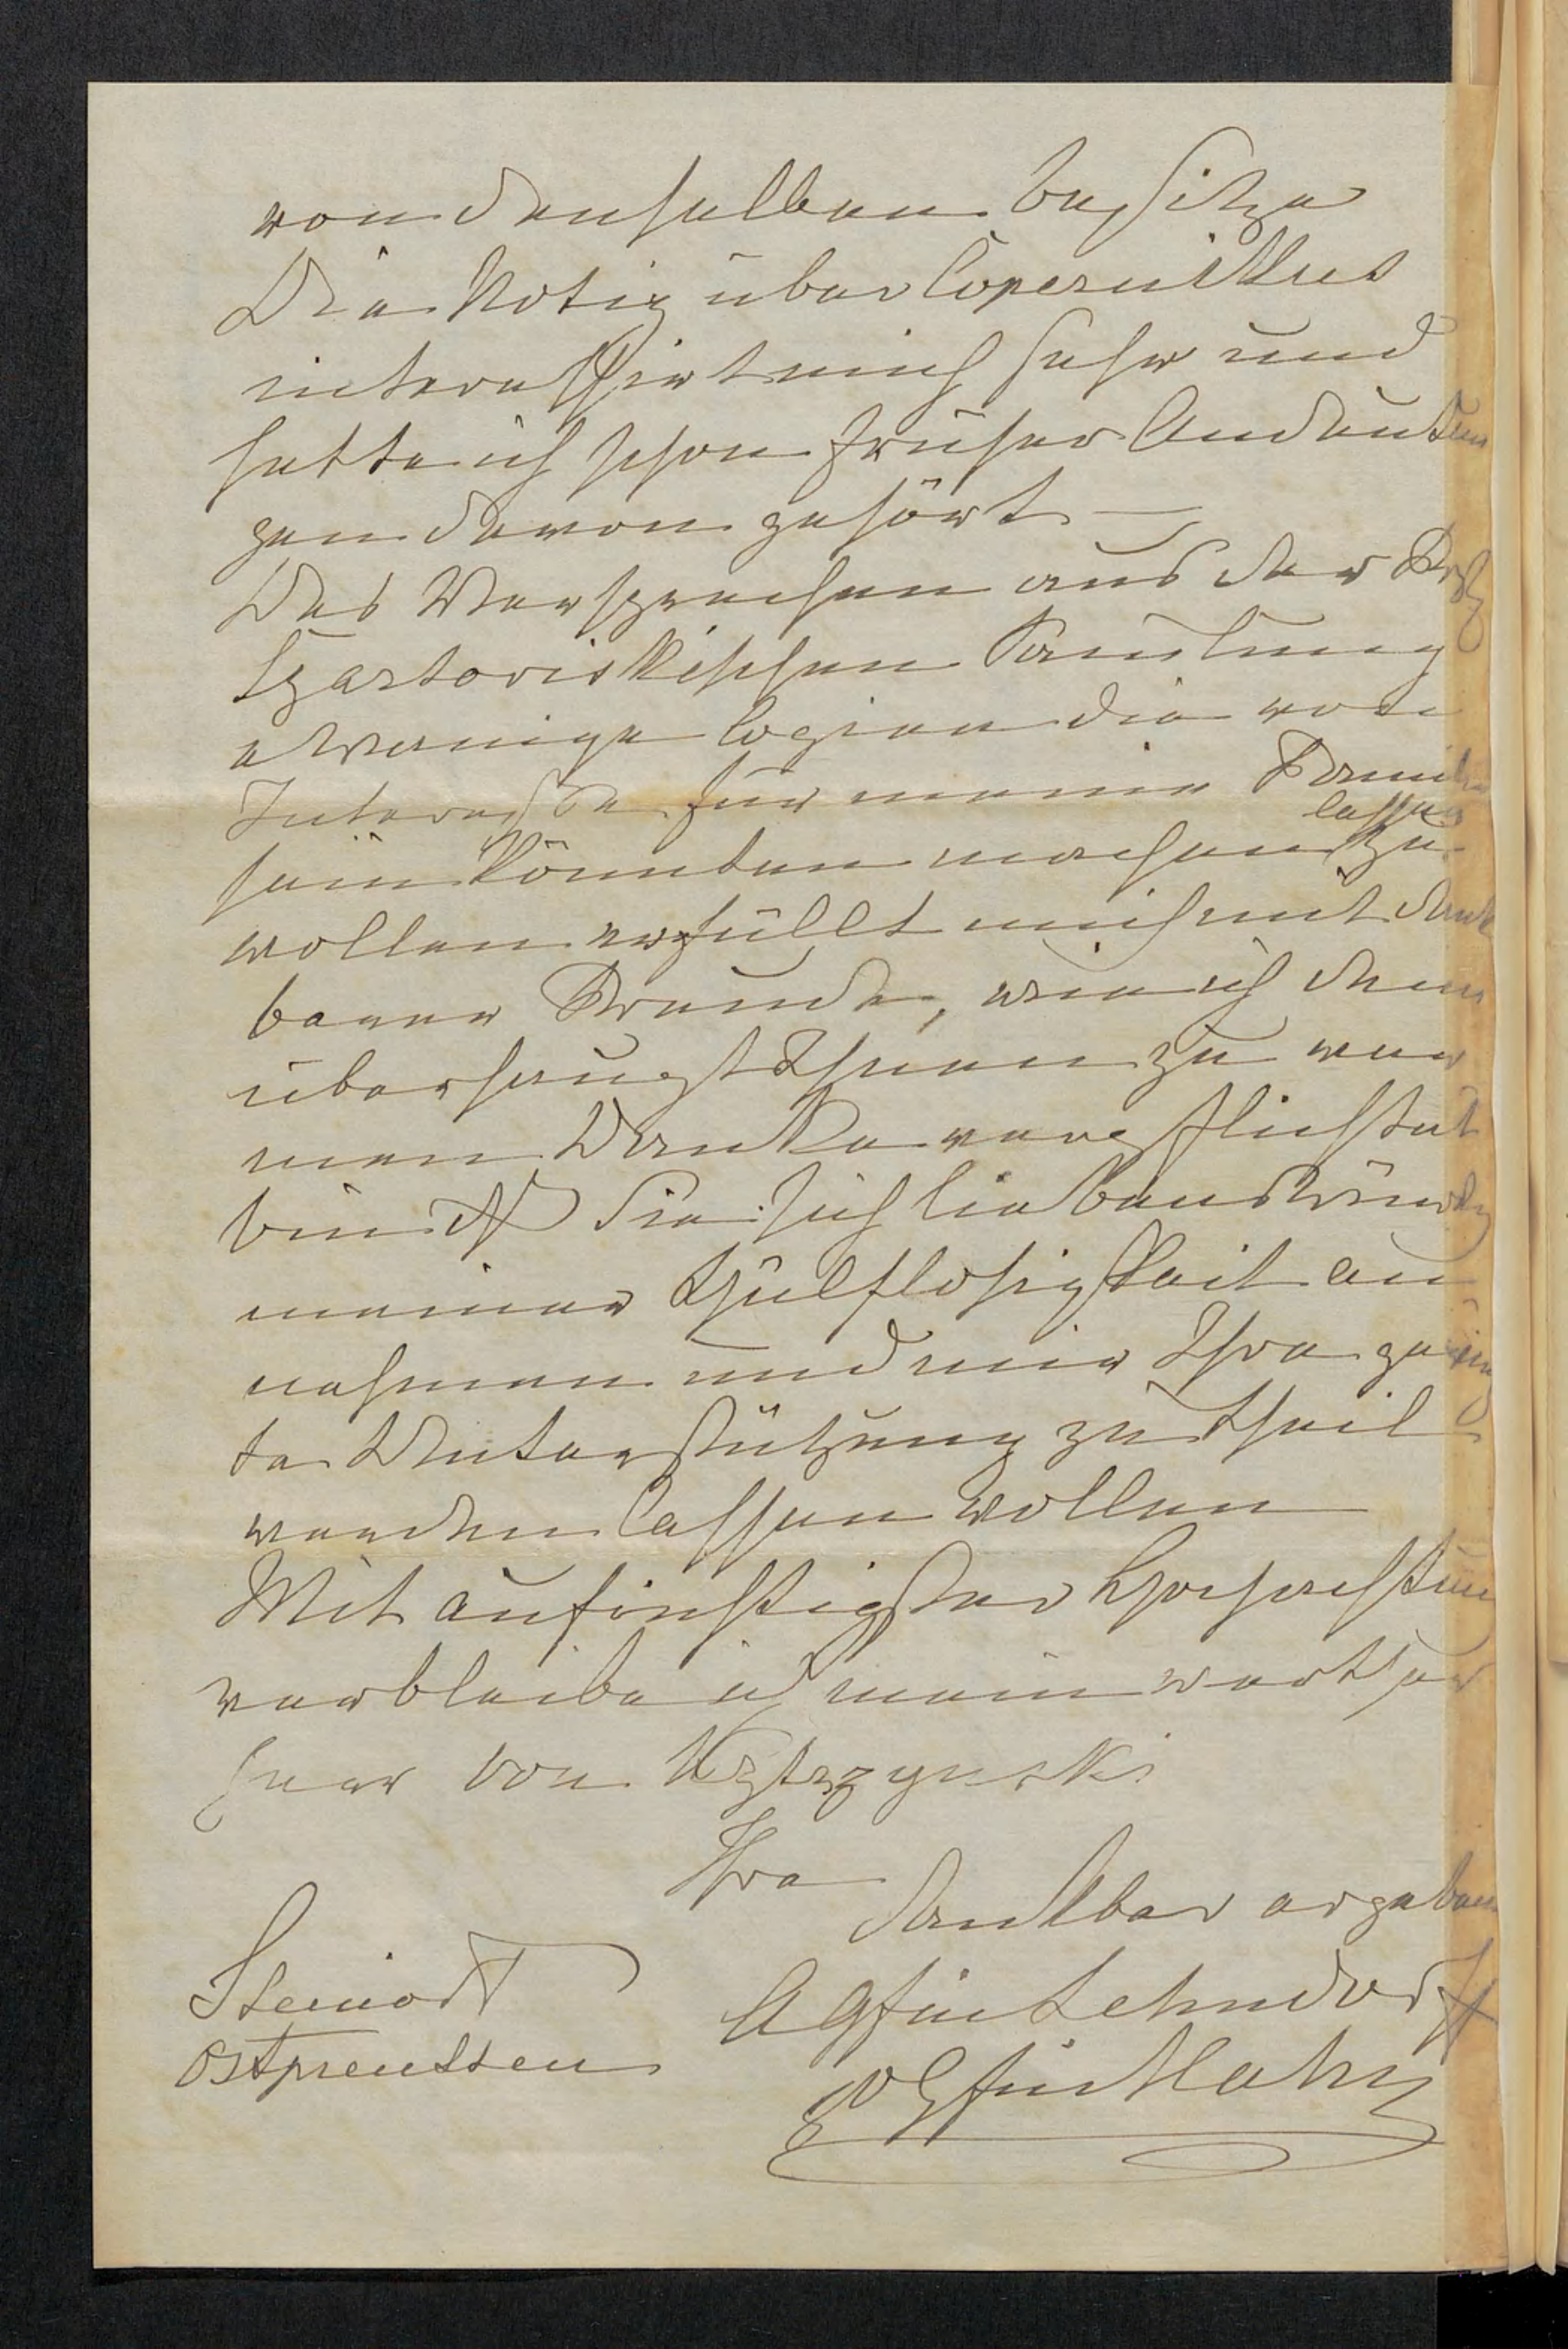 von denselben besitze
Die Notiz über Copernikus
interessirt mich sehr und
hatte ich schon früher Andeutun
gen davon gehört —
Das Versprechen aus der
Czartoriskischen Samlung
etwanige Copien die von
Interesse für meine Familie
sein könnten machen lassen zu
wollen erfüllt mich mit dank
barer Freude, wie ich denn
überhaupt Ihnen zu war
men Danke verpflichtet
bin daß Sie sich liebenswürdig
meiner Hülflosigkeit an
nehmen und mir Ihre
te Unterstützung zu Theil
werden lassen wollen
Mit aufrichtigster Hochachtun
verbleibe ich mein werther
Herr von Kętrzynski
Ihre
dankbar ergeben
Steinort
Ostpreussen
A Gfin Lehndorff
g Gfin Hahn